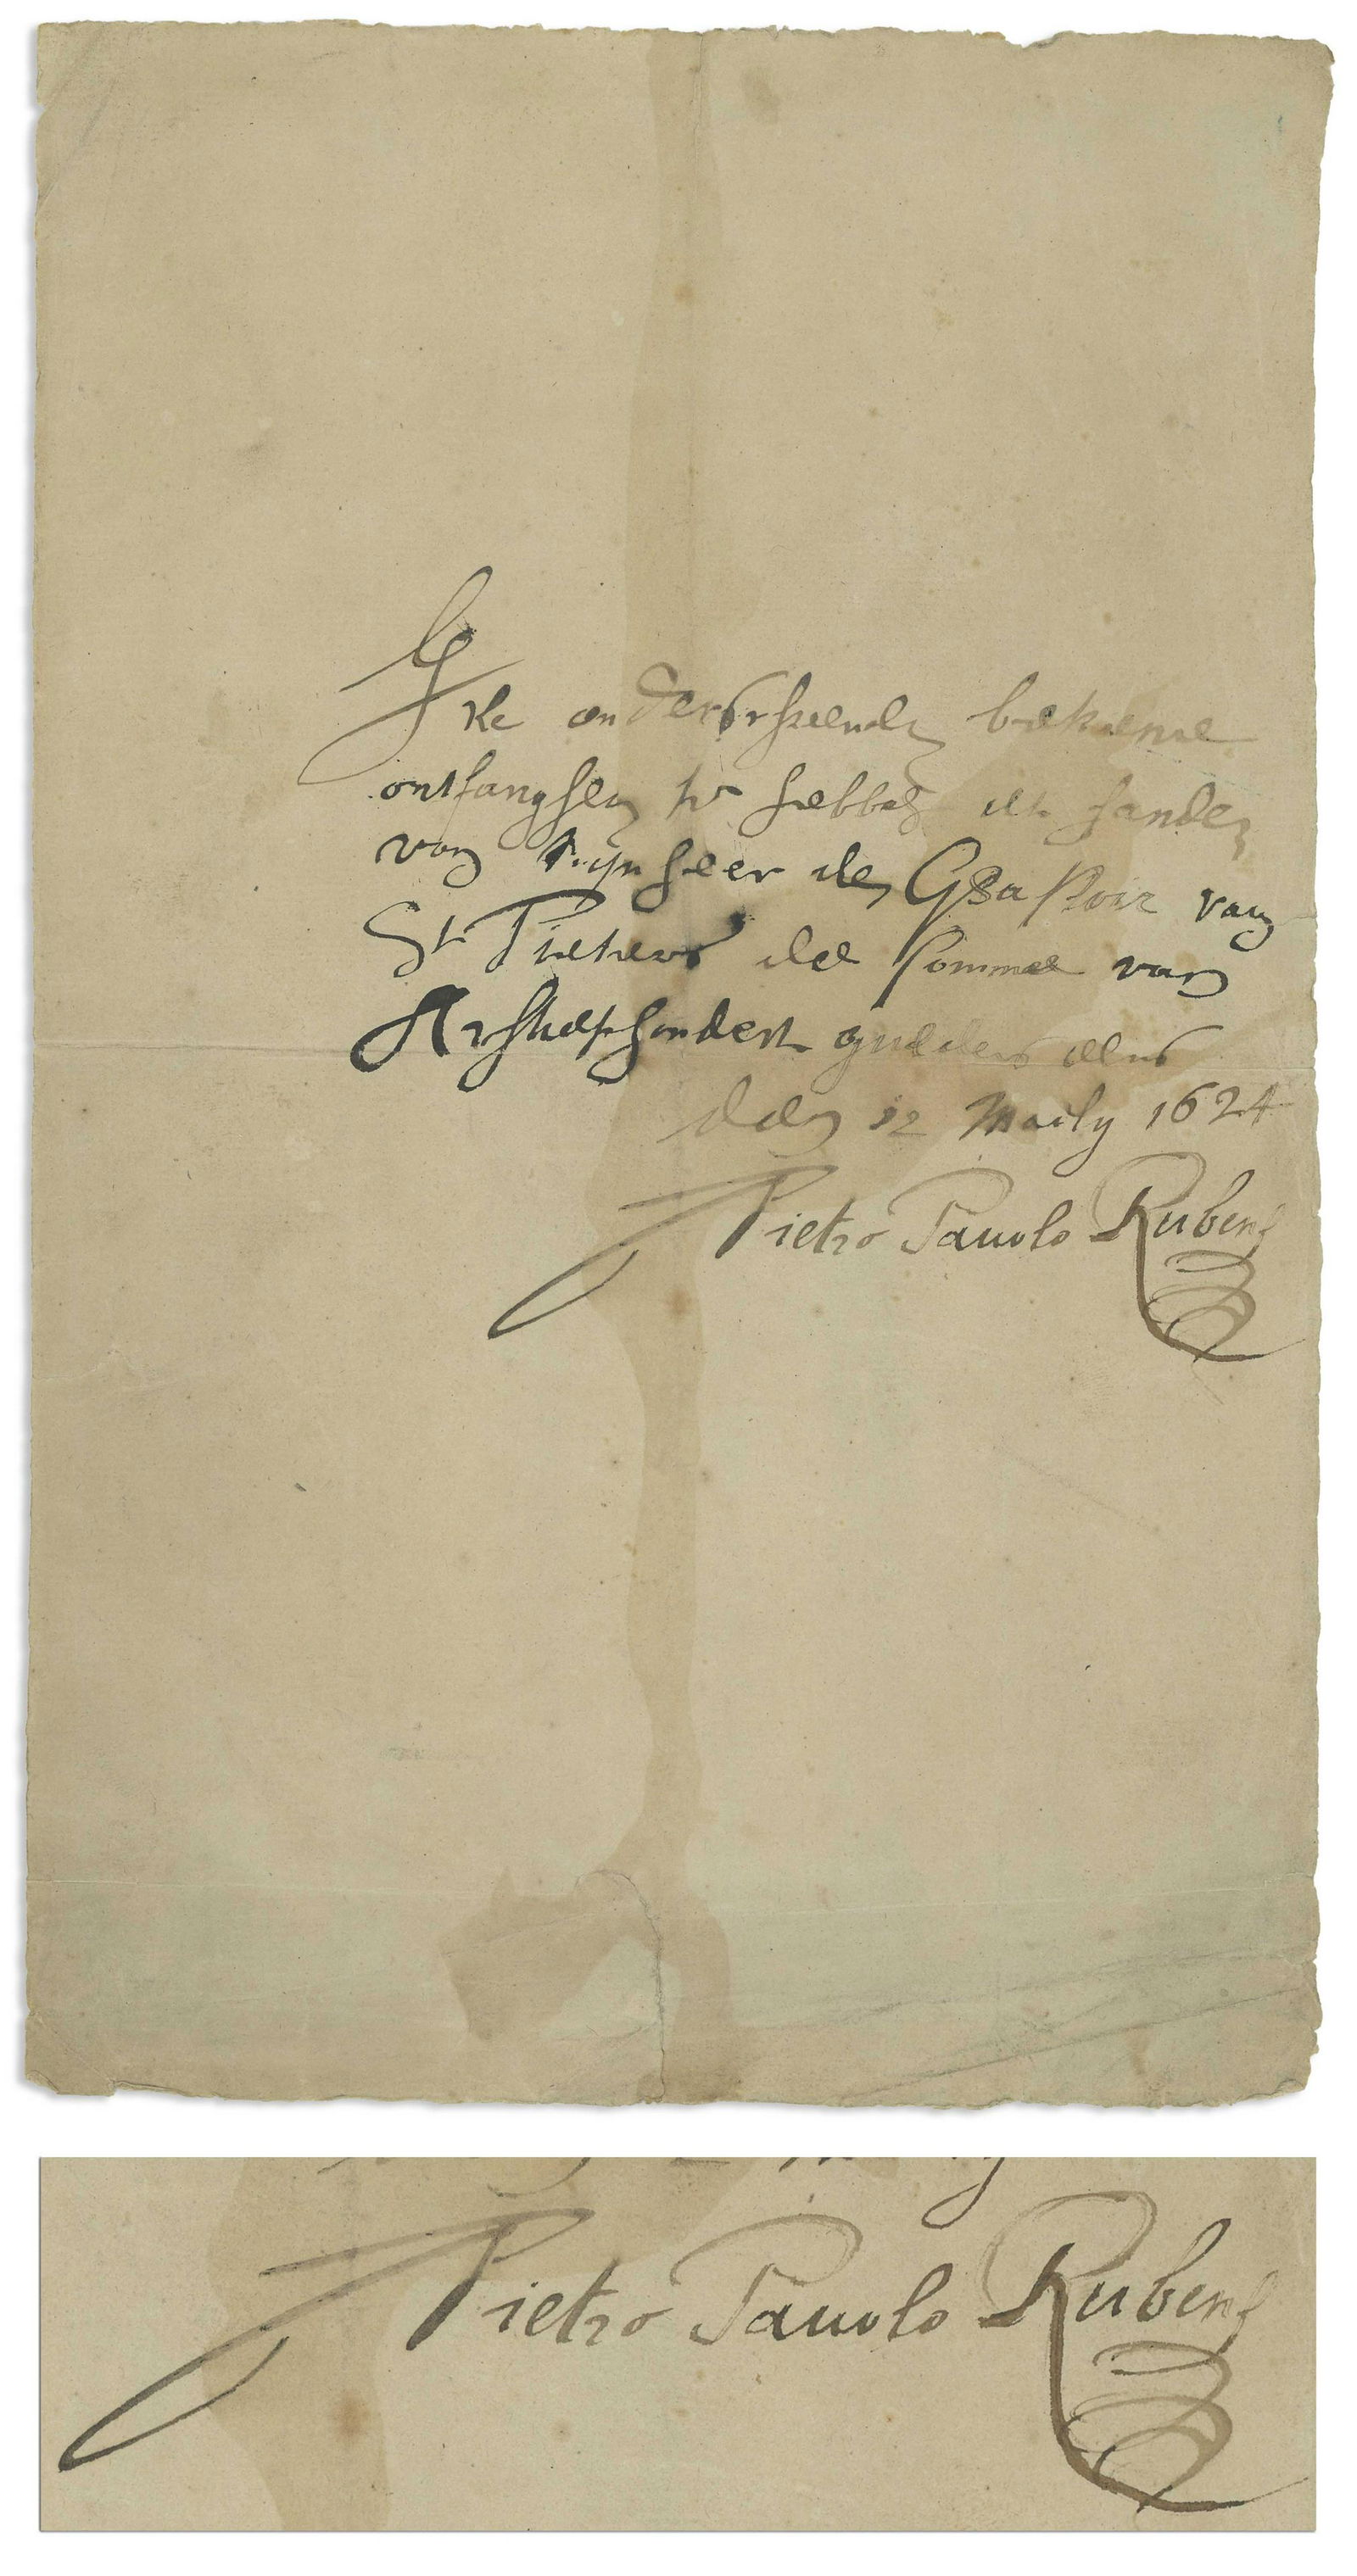 Ick onderschreven bekenne
ontfanghen te hebben uit handen
van Mijn heer den van
St Pieters de somme van
hondert guldens eens
den 12 Maily 1624
Pietro Pauolo Rubens
Pietro Pauolo Rubens